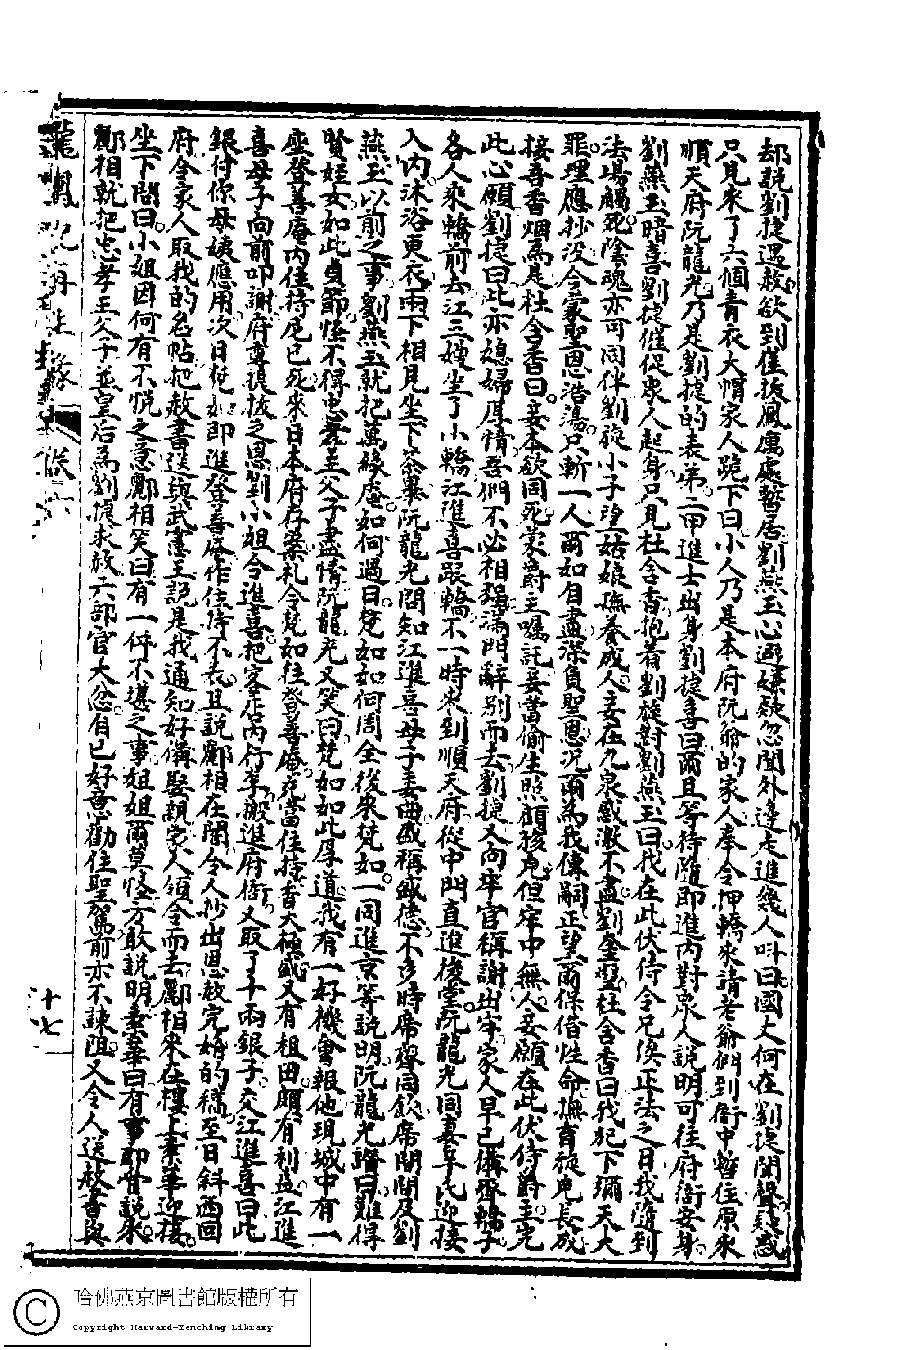 却說劉捷遇赦欲到崔振鳳處暫居劉燕玉心避嫌疑忽聞外邊走進幾人叫曰國丈何在劉捷聞聲疑惑
只見來了六個青衣大帽家人跪下曰小人乃是本府阮爺的家人奉令押轎來請老爺們到衙中暫住原來
順天府阮龍光乃是劉捷的表弟二甲進士出身劉捷喜曰爾且等待隨即進內對眾人說明可往府衙安身
劉燕玉暗喜劉捷催促眾人起身只見杜含香抱着劉旋對劉燕玉曰我在此伏侍令兄俟正法之日我隨到
法場觸死陰魂亦可同伴劉旋小子望姑娘撫養成人妾在九泉感激不盡劉奎璧杜含香曰我犯下彌天大
罪理應抄沒今蒙聖恩浩蕩只斬一人爾如自盡深負聖恩況爾為我傳嗣正望爾保借性命撫育旋兒長成
接吾香烟為是杜含香曰妾本欲同死蒙爵主囑託妾當偷生照顧後兒但牢中無人妾願在此伏侍爵主完
此心願劉捷曰此亦媳婦厚情吾們不必相強滿門辭別而去劉捷又向牢官稱謝出牢家人早已備齊轎子
各人乘轎前去江三嫂坐了小轎江進喜跟轎不一時來到順天府從中門直進後堂阮龍光同妻于氏迎接
入內沐浴更衣兩下相見坐下茶畢阮龍光問知江進喜母子委曲感稱盛德不多時席齊同飲席間問及劉
燕玉以前之事劉燕玉就把萬緣庵如何過日梵如如何周全後來梵如一同進京等說明阮龍光讚曰難得
賢姪女如此貞節怪不得忠孝王父子盡情阮龍光又笑曰梵如如此厚道我有一好機會報他現城中有一
座登善庵內住持尼已死來日本府存案札令梵如往登善庵充當住持香火極盛又有租田頗有利益江進
喜母子向前叩謝府尊提拔之恩劉小姐令進喜把寄店內行李搬進府衙又取了千兩銀子交江進喜曰此
銀付你母姨應用次日梵如即進登善庵作住持不表且說酈相在閣令人抄出恩赦完婚的稿至日斜西回
府令家人取我的名帖把赦書送與武憲王說是我通知好備娶親家人領令而去酈相來在樓上素華迎接
坐下問曰小姐因何有不悅之意酈相笑曰有一件不堪之事姐姐爾莫怪方敢說明素華曰有事即管說來
酈相就把忠孝王父子並皇后為劉捷求赦六部官大忿自已好意勸住聖駕前亦不諫阻又令人送赦書與
十七
哈佛燕京圖書館版權所有
Copyright Harvard-Yenching Library